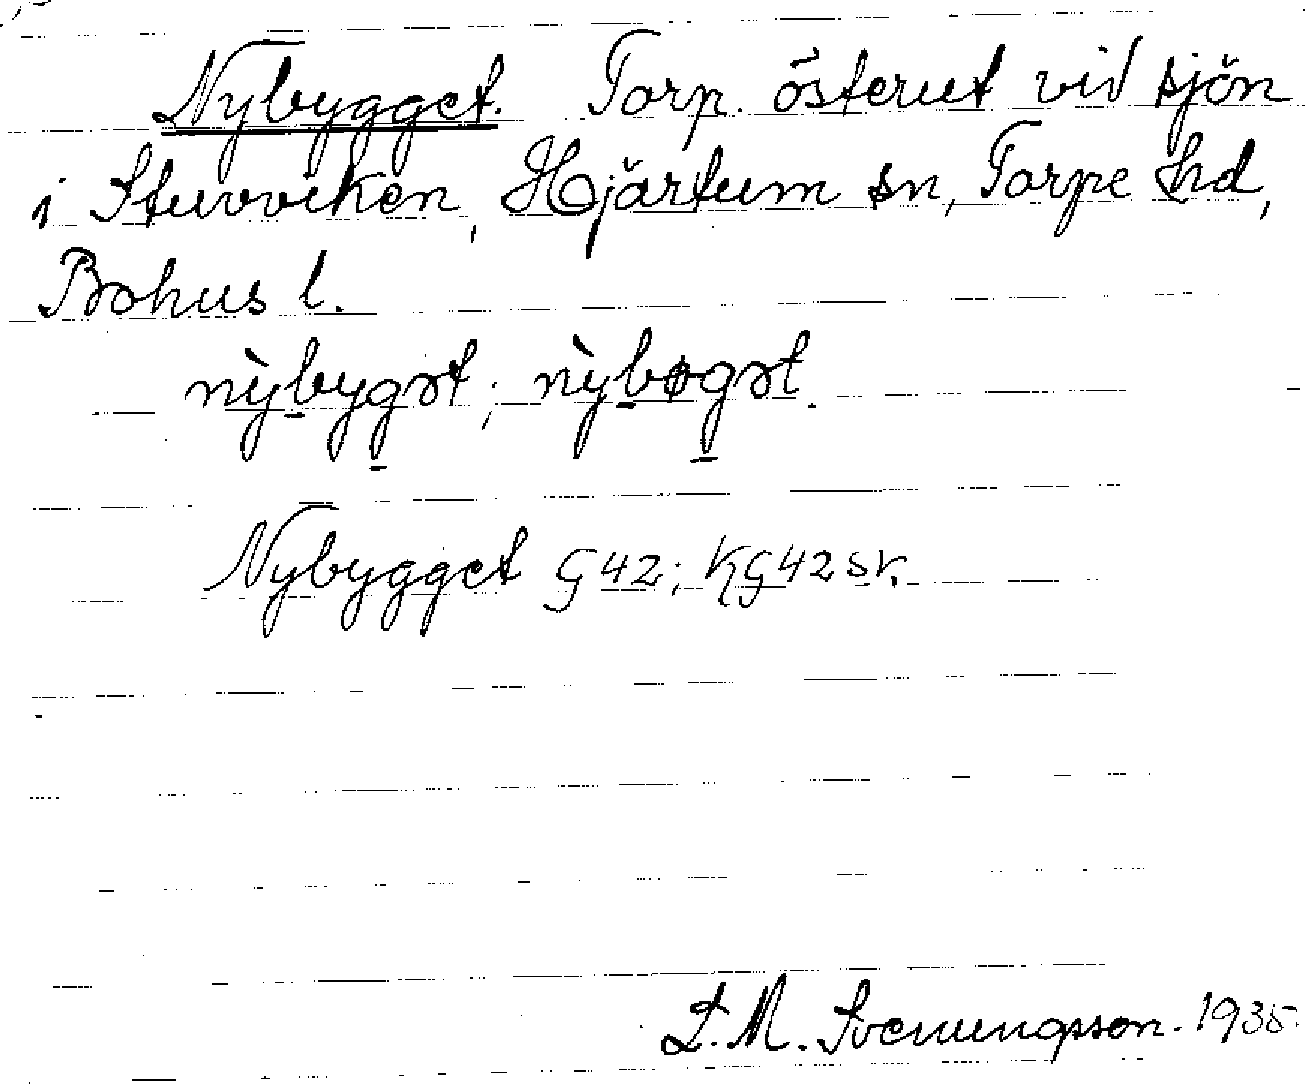 Nybygget. Torp. österut vid sjön
i Stuvviken, Hjärtum sn, Torpe hd,
Bohus l.
nỳbygət; nỳbøgət.
Nybygget G42; KG42 sk.
L. M. Svenungsson. 1935.